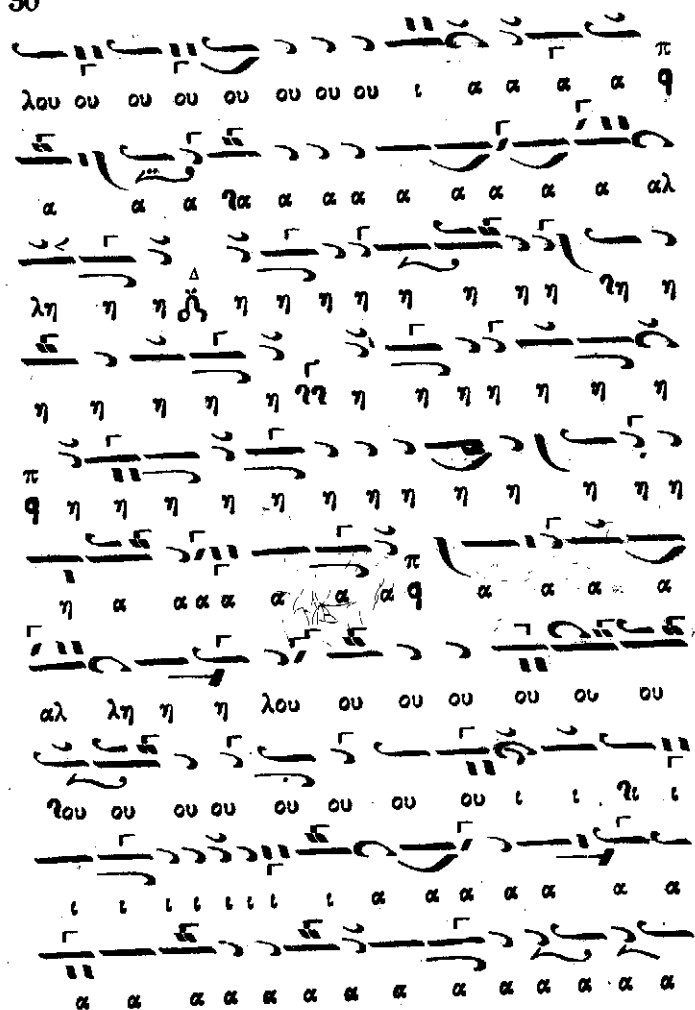 50
λου ου ου ου ου ου ου ου ι α α α α π q
α α α γα α α α α α α α α αλ
λη η η Δ η η η η η η η η γη η
η η η η η γγ η η η η η η η
π q η η η η η η η η η η η η η
η α α α α α α α π q α α α α
αλ λη η η λου ου ου ου ου ου ου
γου ου ου ου ου ου ου ου ι ι γι ι
ι ι ι ι ι ι ι ι α α α α α α α
α α α α α α α α α α α α α α